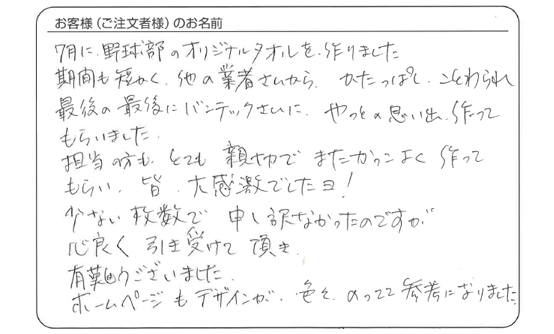 お客様(ご注文者様)のお名前
7月に、野球部のオリジナルタオルを、作りました
期間も短かく、他の業者さんから、かたっぱし、ことわられ
最後の最後にバンテックさんに、やっとの思い出、作って
もらいました。
担当の方も、とても 親切で またかっこよく 作って
もらい、皆、大感激でしたヨ!
少ない枚数で 申し訳なかったのですが
心良く 引き受けて 頂き、
有難うございました。
ホームページも デザインが、色々、のってて 参考になりました